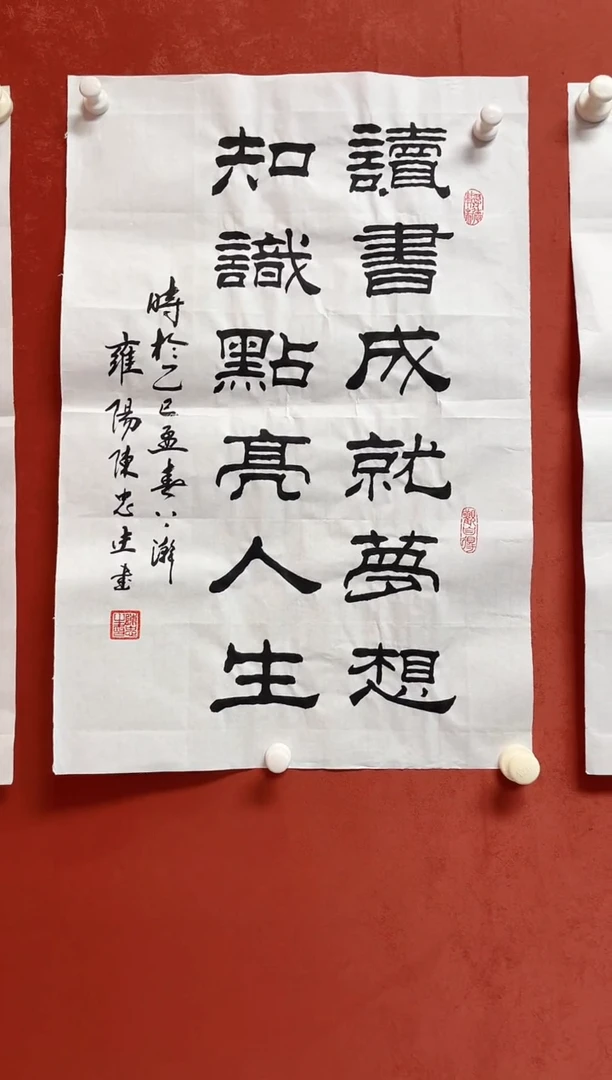 讀書成就夢想
知識點亮人生
時於乙巳孟春
雍陽陳忠書